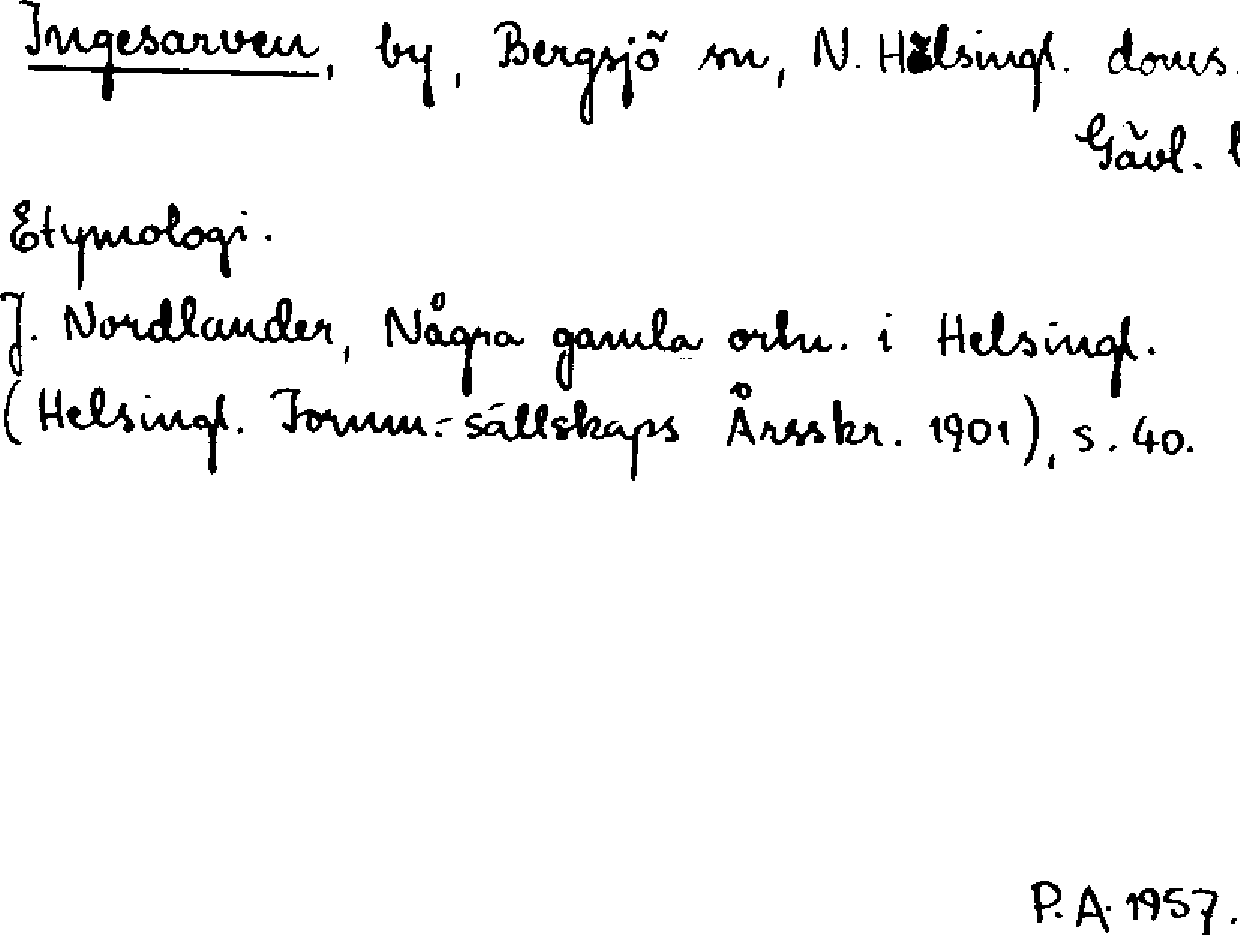 Ingesarven, by, Bergsjö sn, N. Hälsingl. doms.
Gävl. l
Etymologi.
J. Nordlander, Några gamla ortn. i Helsingl.
(Helsingl. Fornm.-sällskaps Årsskr. 1901), s. 40.
P. A. 1957.